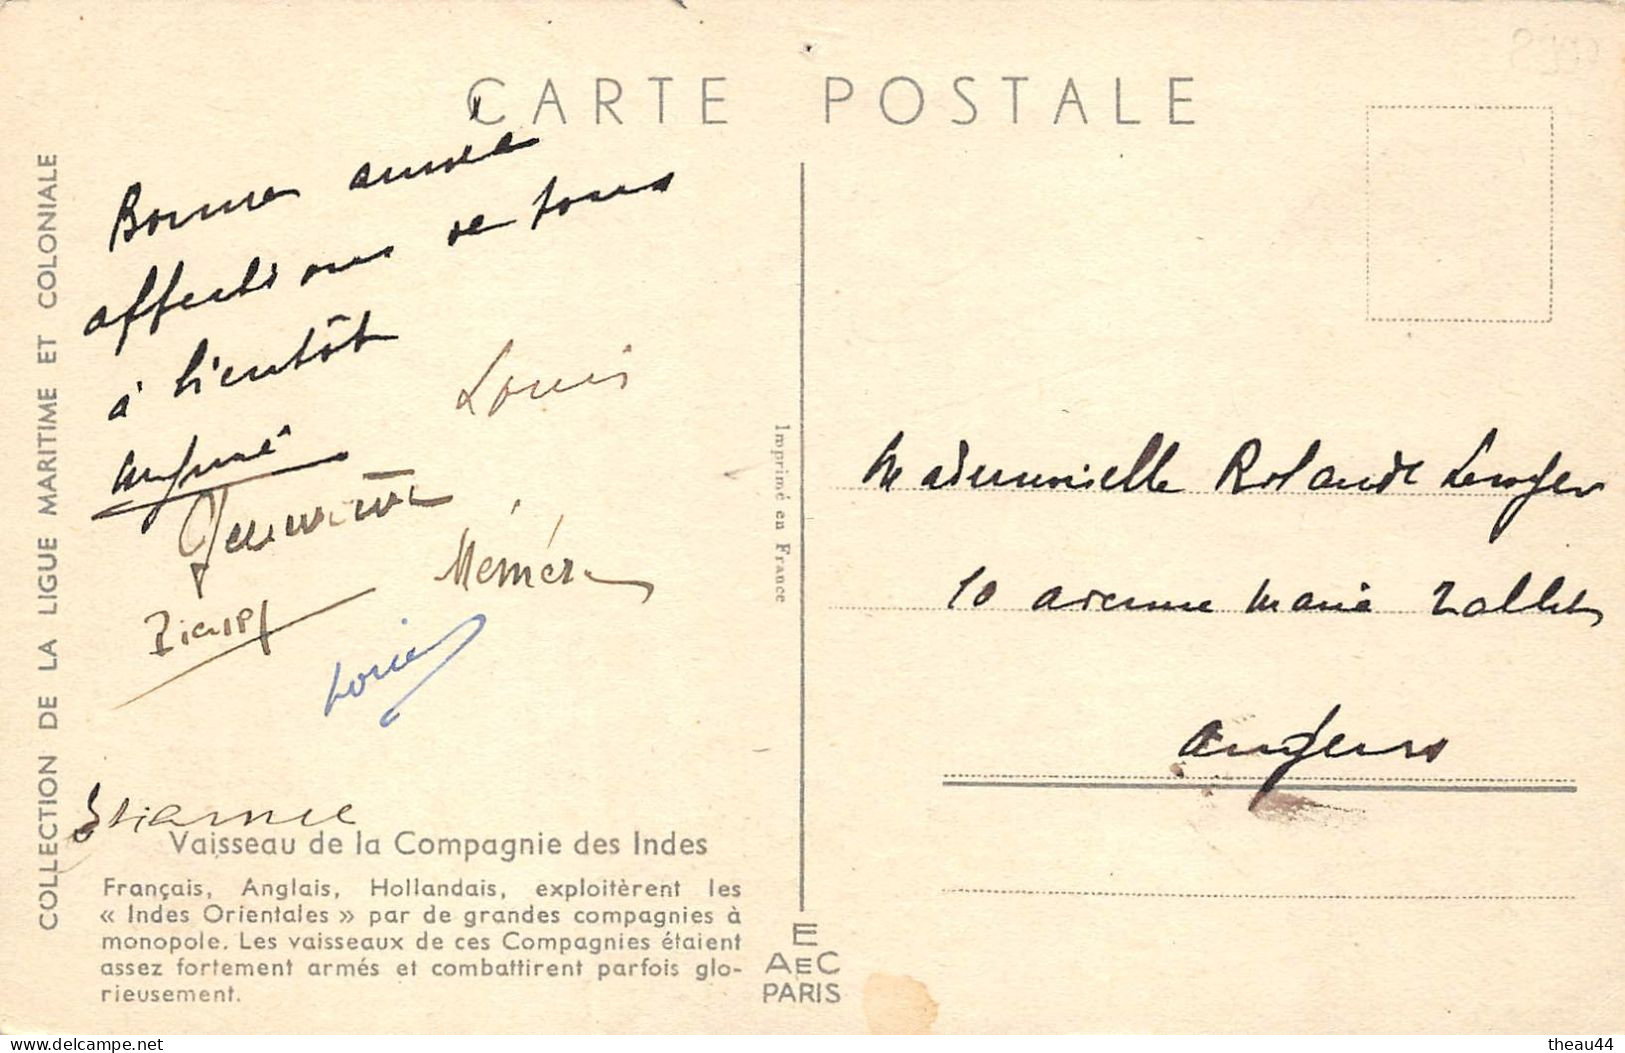 CARTE POSTALE
COLLECTION DE LA LIGUE MARITIME ET COLONIALE
Bonne année
affections de tous
à bientôt
Louis
Mémère
Louis
Vaisseau de la Compagnie des Indes
Français, Anglais, Hollandais, exploitèrent les
« Indes Orientales » par de grandes compagnies à
monopole. Les vaisseaux de ces Compagnies étaient
assez fortement armés et combattirent parfois glo-
rieusement.
Imprimé en France
E
AEC
PARIS
Mademoiselle Rolande
10 avenue Marie
Angers
delcampe.net
theau44